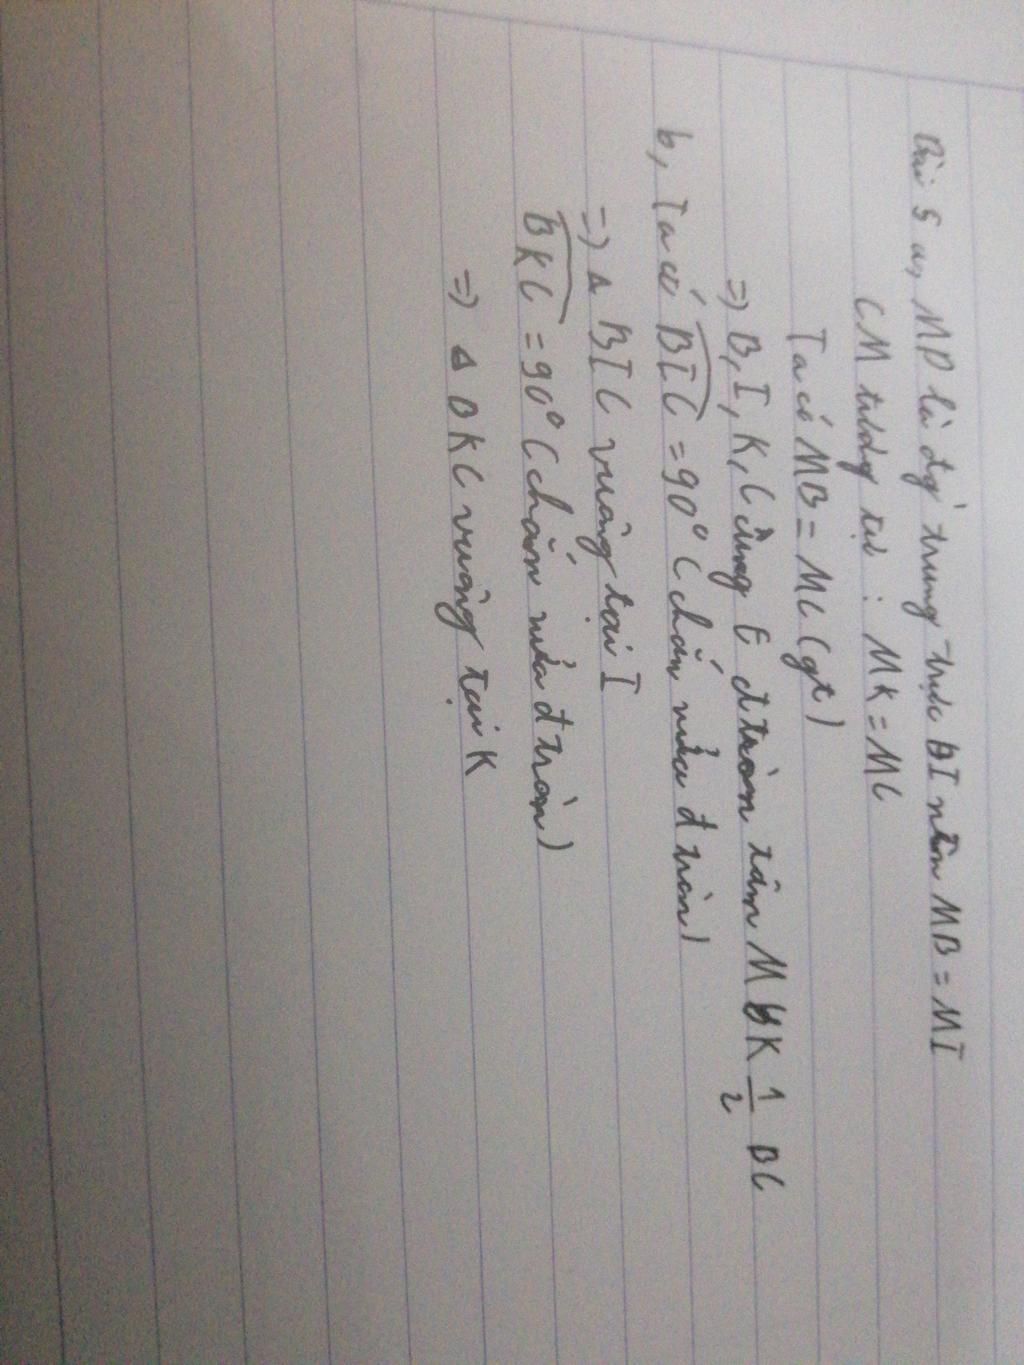 Bài 5 a, MD là đg trung trực BI nên MB = MI
CM tương tự : MK = MC
Ta có MB = MC (gt)
=> B, I, K, C cùng E đ tròn tâm M bK 1/2 BC
b, Ta có BIC = 90° (chắn nửa đ tròn)
=> Δ BIC vuông tại I
BKC = 90° (chắn nửa đ tròn)
=> Δ BKC vuông tại K